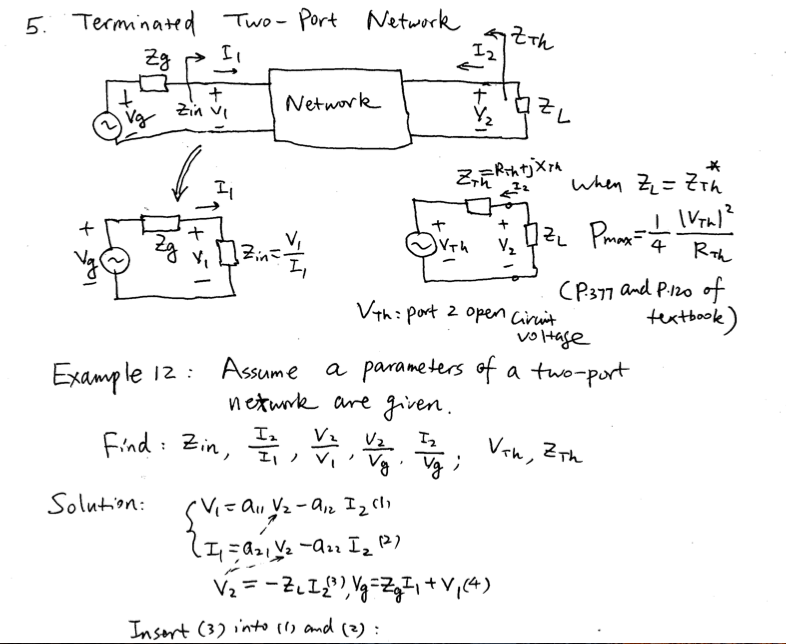 5. Terminated Two-Port Network
Zg I1 I2 ZTh
+ Vg - Zin + V1 - Network + V2 - ZL
I1 ZTh=RTh+jXTh I2 when ZL = ZTh*
+ Vg - Zg + V1 - Zin = V1/I1 + VTh - + V2 - ZL Pmax = 1/4 |VTh|²/RTh
(P.377 and P.120 of
textbook)
VTh: port 2 open circuit
voltage
Example 12: Assume a parameters of a two-port
network are given.
Find: Zin, I2/I1, V2/V1, V2/Vg, I2/Vg; VTh, ZTh
Solution: { V1 = a11 V2 - a12 I2 (1)
I1 = a21 V2 - a22 I2 (2)
V2 = -ZL I2 (3), Vg = Zg I1 + V1 (4)
Insert (3) into (1) and (2):